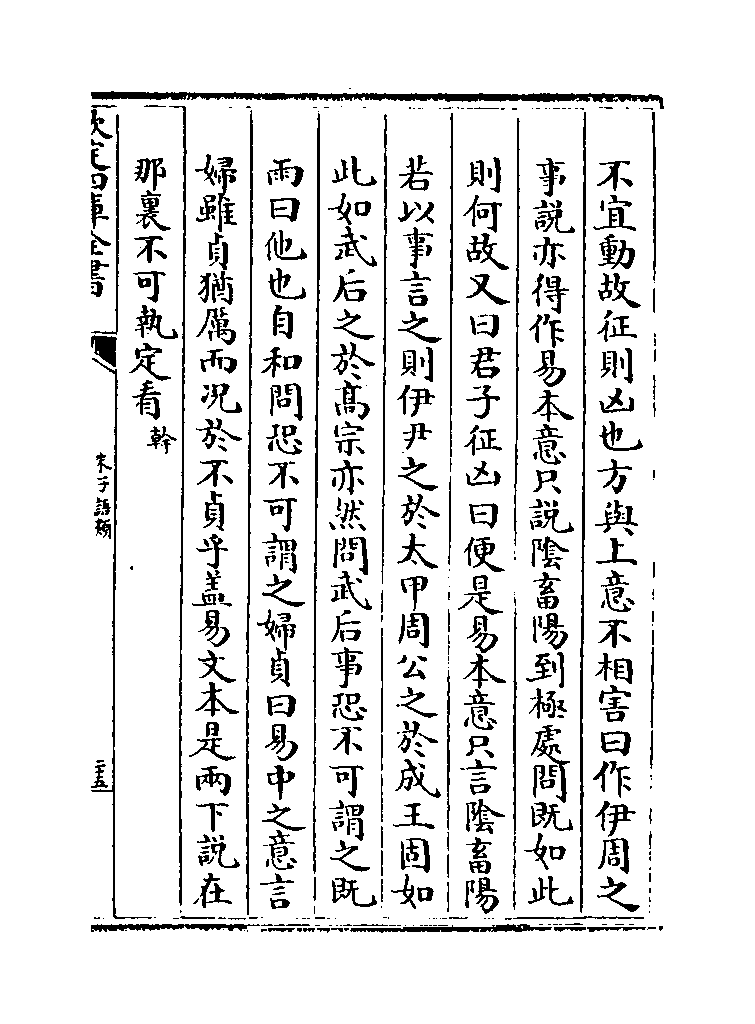 不宜動故征則凶也方與上意不相害曰作伊周之
事說亦得作易本意只說陰畜陽到極處問既如此
則何故又曰君子征凶曰便是易本意只言陰畜陽
若以事言之則伊尹之於太甲周公之於成王固如
此如武后之於髙宗亦然問武后事恐不可謂之既
雨曰他也自和問恐不可謂之婦貞曰易中之意言
婦雖貞猶厲而况於不貞乎盖易文本是兩下說在
那裏不可執定看 幹
欽定四庫全書
朱子語類
二十五